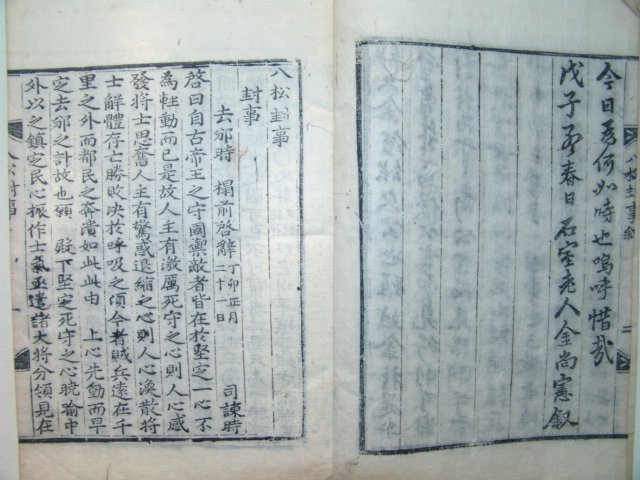 今日爲何如時也嗚呼惜哉
戊子孟春日石室老人金尚憲叙
八松封事
封事
去邠時 榻前啓辭 丁卯正月二十一日 司諫時
啓曰自古帝王之守國禦敵者皆在於堅定一心不
爲輕動而已是故人主有激厲死守之心則人心感
發將士思奮人主有驚惑退縮之心則人心渙散將
士解體存亡勝敗决於呼吸之頃今者賊兵遠在千
里之外而都民之奔潰如此此由 上心先動而早
定去邠之計故也願 殿下堅定死守之心曉喻中
外以之鎮定民心振作士氣亟遣諸大將分領見在